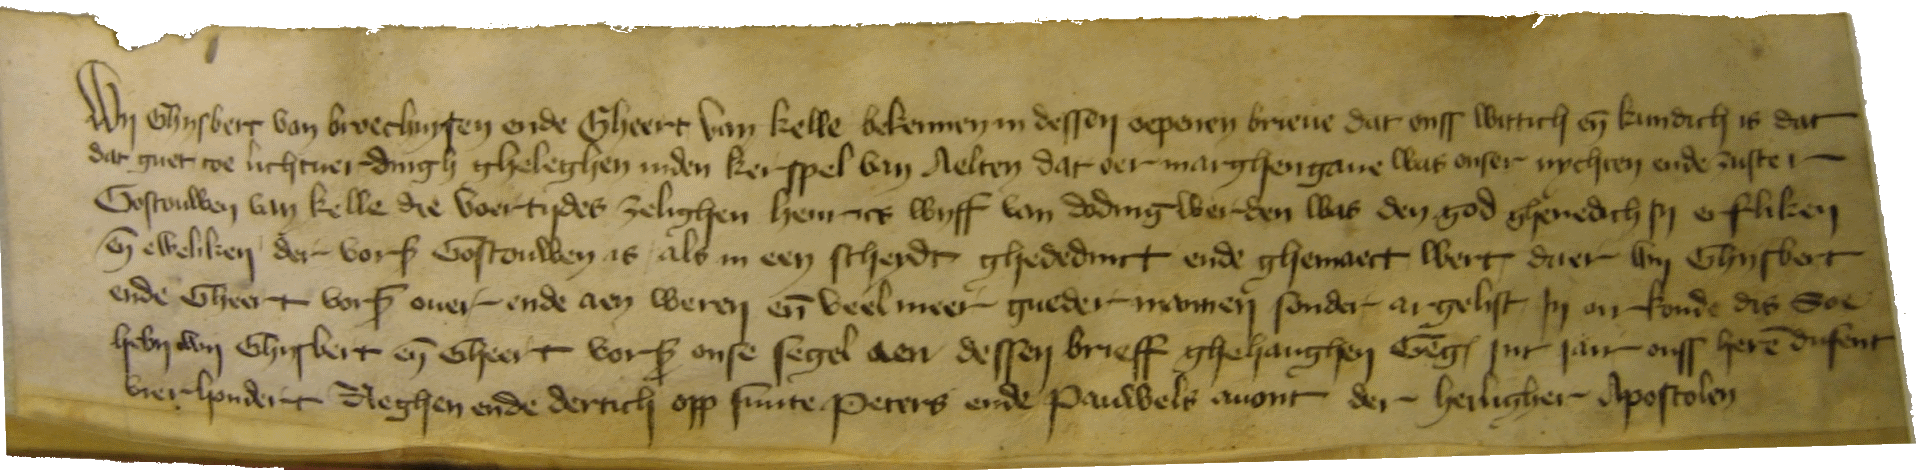 Wij Ghijsbert van broechuysen ende Gheert van kelle bekennen in dessen oepenen brieue dat onss wittich en̄ kundich is dat
dat guet toe lichtuerdingh gheleghen inden kerspel van Aelten dat oer marghengaue was onser nychten ende zuster
Gostouwen van kelle die voertijdes zelighen henrics wyff van dodingwerden was den god ghenedich sy erfliken
en̄ eweliken der vors̄ Gostouwen is als in een scheydt ghededinct ende ghemaect wert daer wij Ghijsbert
ende Gheert vors̄ ouer ende aen weren en̄ veel meer gueder mannen sonder argelist In orkonde dis Soe
hebn wij Ghijsbert en̄ Gheert vors̄ onse segel aen dessen brieff ghehanghen Geḡ Int jair onss herē dusent
vierhondert Neghen ende dertich opp sunte Peters ende Pauwels auont der heiligher Apostolen